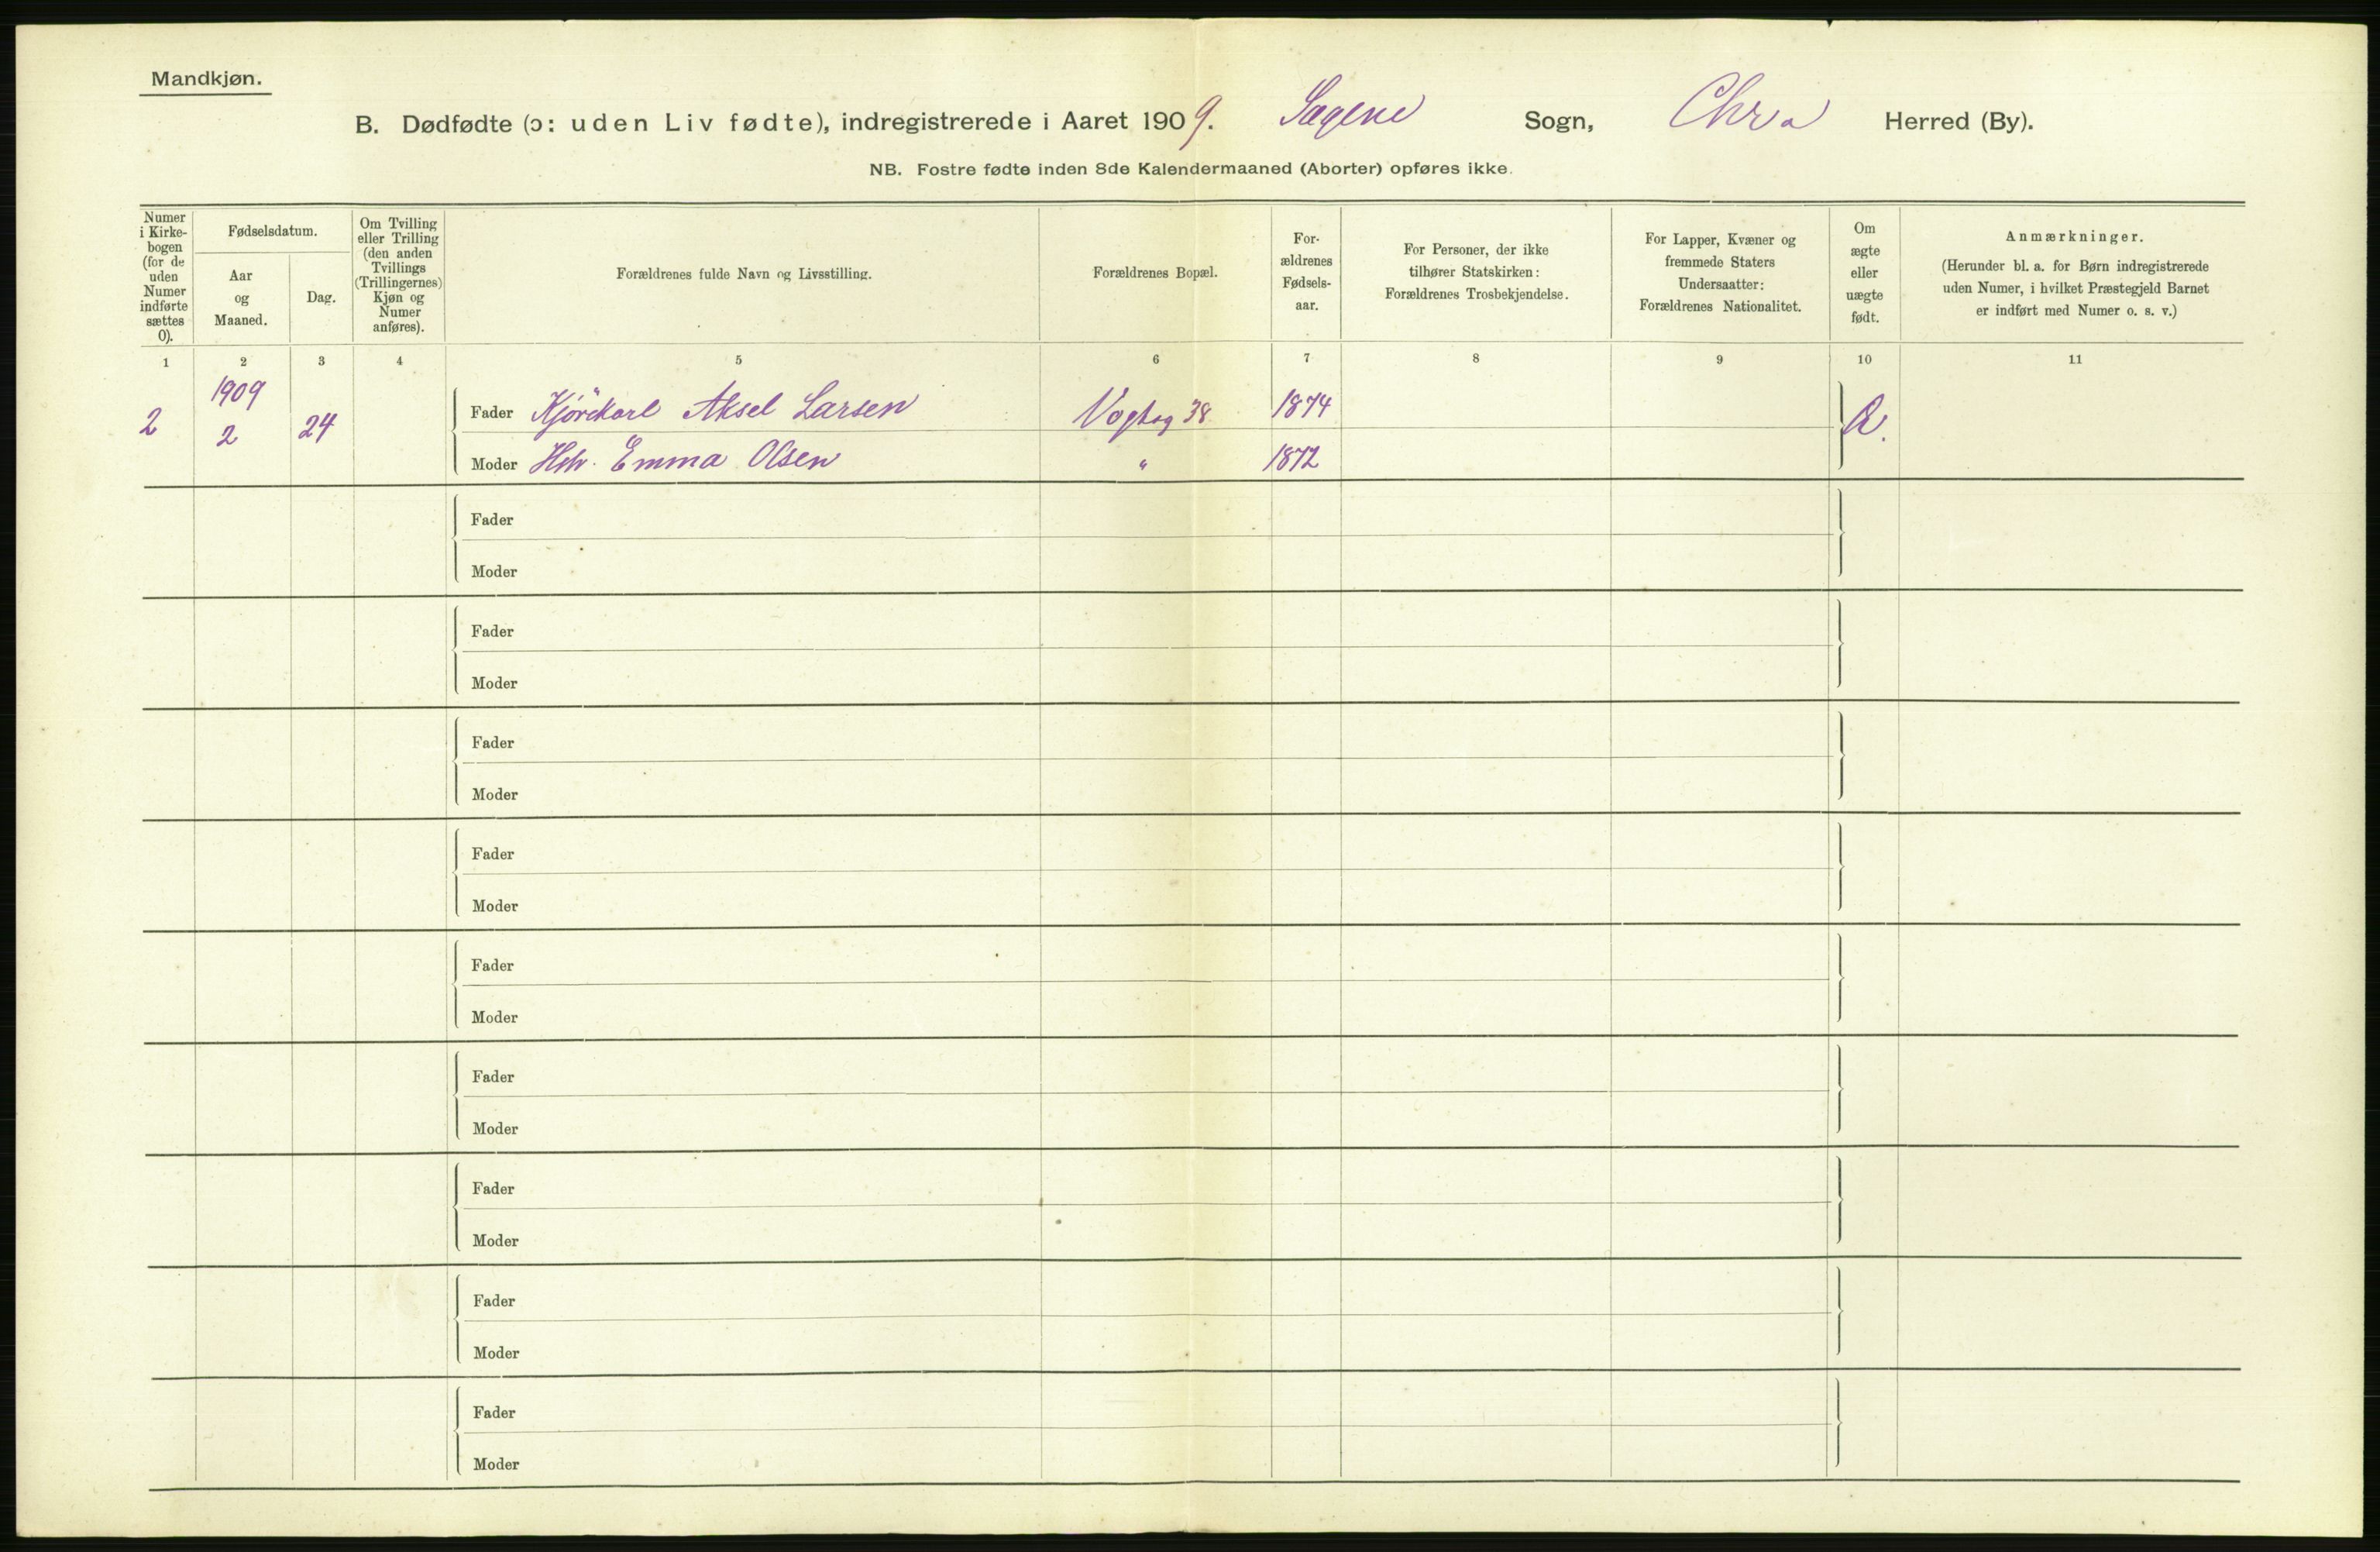 Mandkjøn.
B. Dødfødte (ɔ: uden Liv fødte), indregistrerede i Aaret 1909. Sagene Sogn, Chr.a Herred (By).
NB. Fostre fødte inden 8de Kalendermaaned (Aborter) opføres ikke.
Numer
i Kirke-
bogen
(for de
uden
Numer
indførte
sættes
0).
Fødselsdatum.
Aar
og
Maaned.
Dag.
Om Tvilling
eller Trilling
(den anden
Tvillings
(Trillingernes)
Kjøn og
Numer
anføres).
Forældrenes fulde Navn og Livsstilling.
Forældrenes Bopæl.
For-
ældrenes
Fødsels-
aar.
For Personer, der ikke
tilhører Statskirken:
Forældrenes Trosbekjendelse.
For Lapper, Kvæner og
fremmede Staters
Undersaatter:
Forældrenes Nationalitet.
Om
ægte
eller
uægte
født.
Anmærkninger.
(Herunder bl. a. for Børn indregistrerede
uden Numer, i hvilket Præstegjeld Barnet
er indført med Numer o. s. v.)
1 2 3 4 5 6 7 8 9 10 11
1909
2 2 24 Fader Kjørekarl Aksel Larsen Vogtsg 38 1874
Moder Hstr. Emma Olsen " 1872
Fader
Moder
Fader
Moder
Fader
Moder
Fader
Moder
Fader
Moder
Fader
Moder
Fader
Moder
Fader
Moder
Fader
Moder